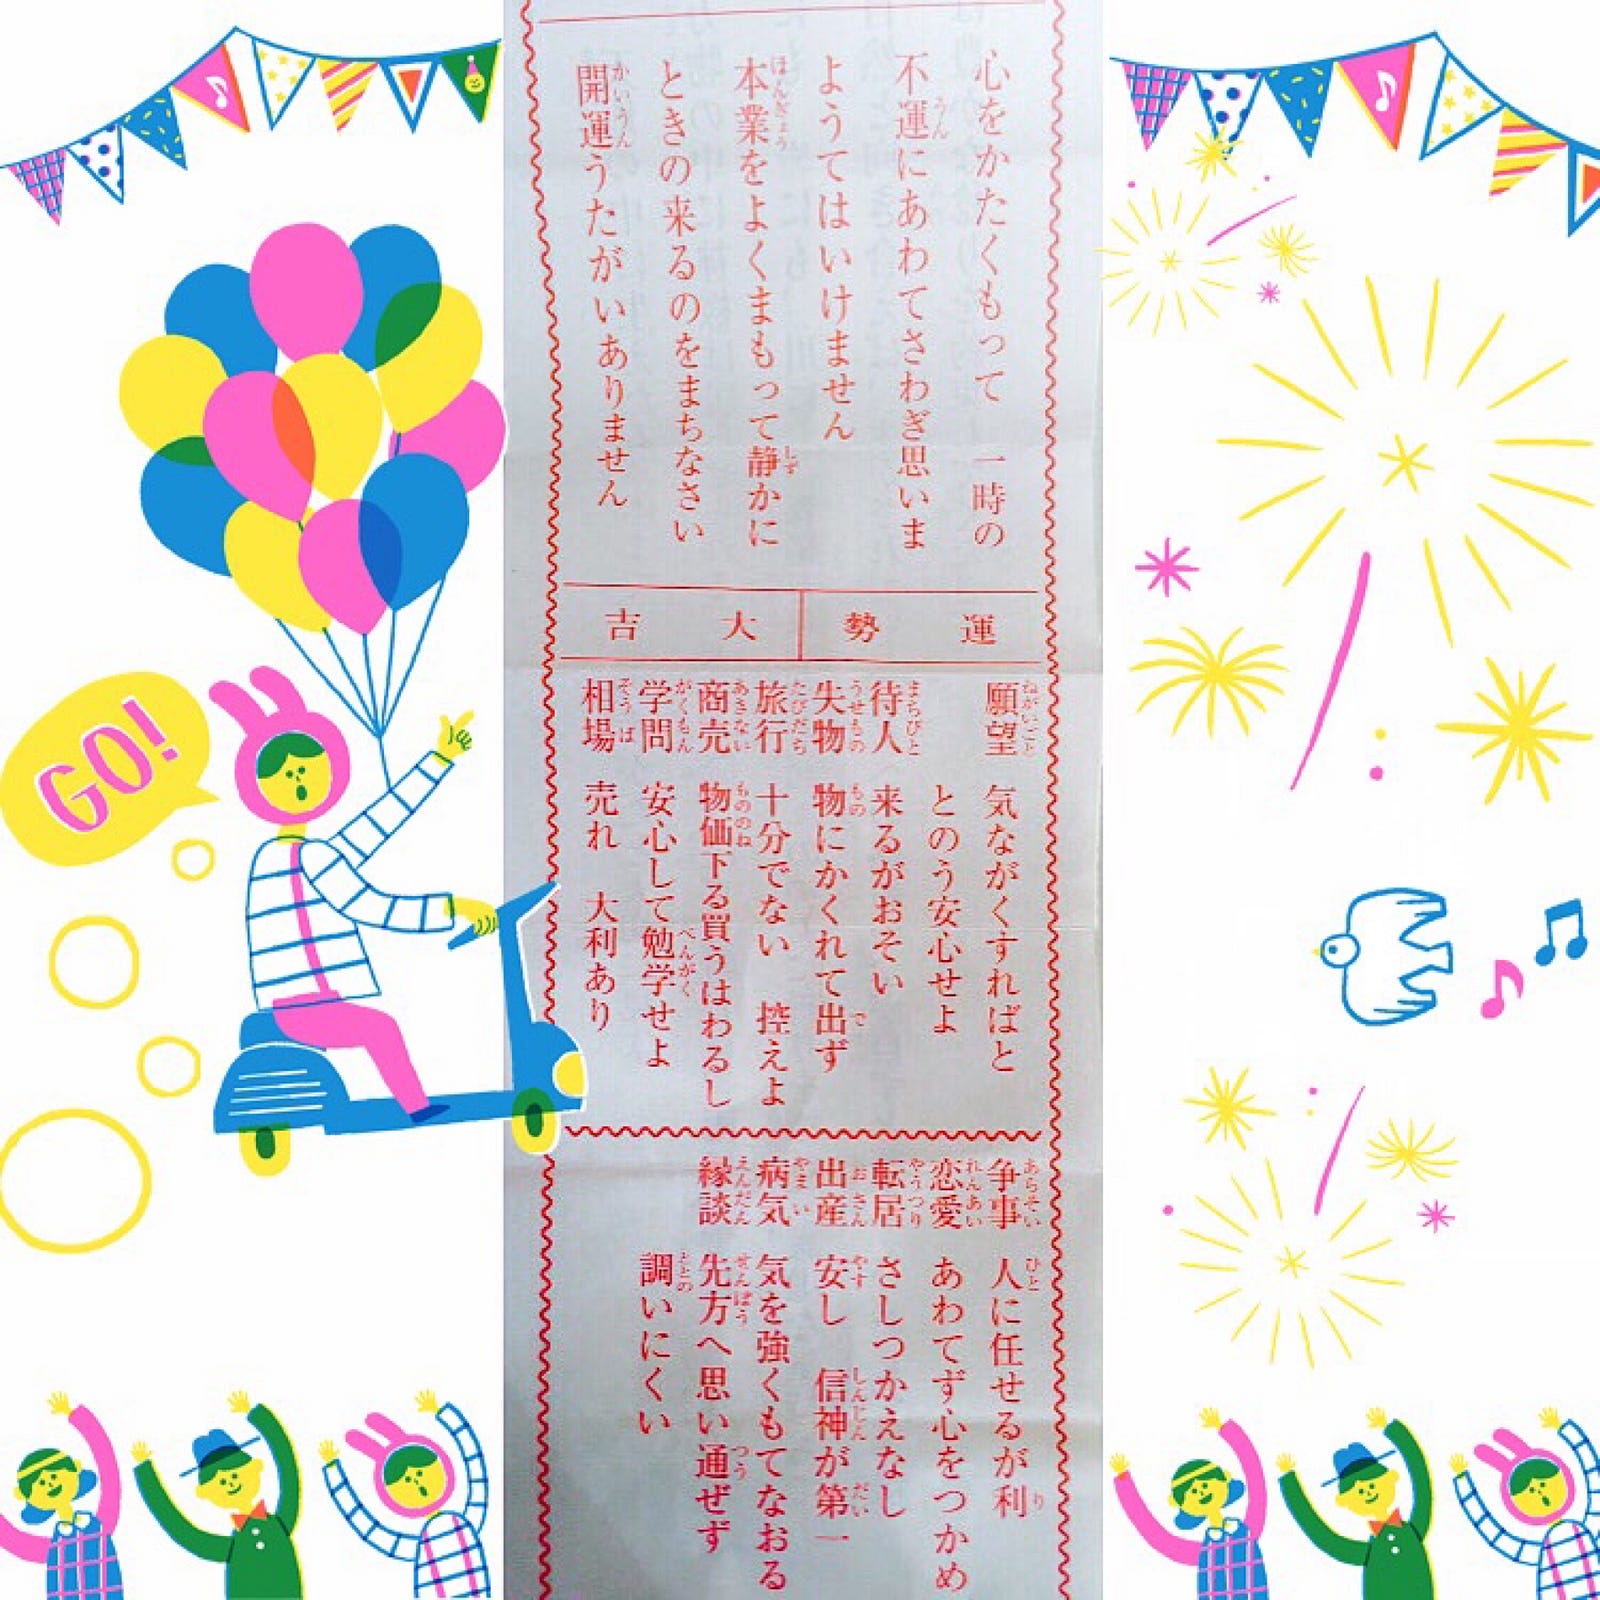 GO!
心をかたくもって 一時の
不運にあわてさわぎ思いま
ようてはいけません
本業をよくまもって静かに
ときの来るのをまちなさい
開運うたがいありません
運勢 大吉
願望 気ながくすればとと
のう安心せよ
待人 来るがおそい
失物 物にかくれて出ず
旅行 十分でない 控えよ
商売 物価下る買うはわるし
学問 安心して勉学せよ
相場 売れ 大利あり
争事 人に任せるが利
恋愛 あわてず心をつかめ
転居 さしつかえなし
出産 安し 信神が第一
病気 気を強くもてなおる
縁談 先方へ思い通ぜず
調いにくい